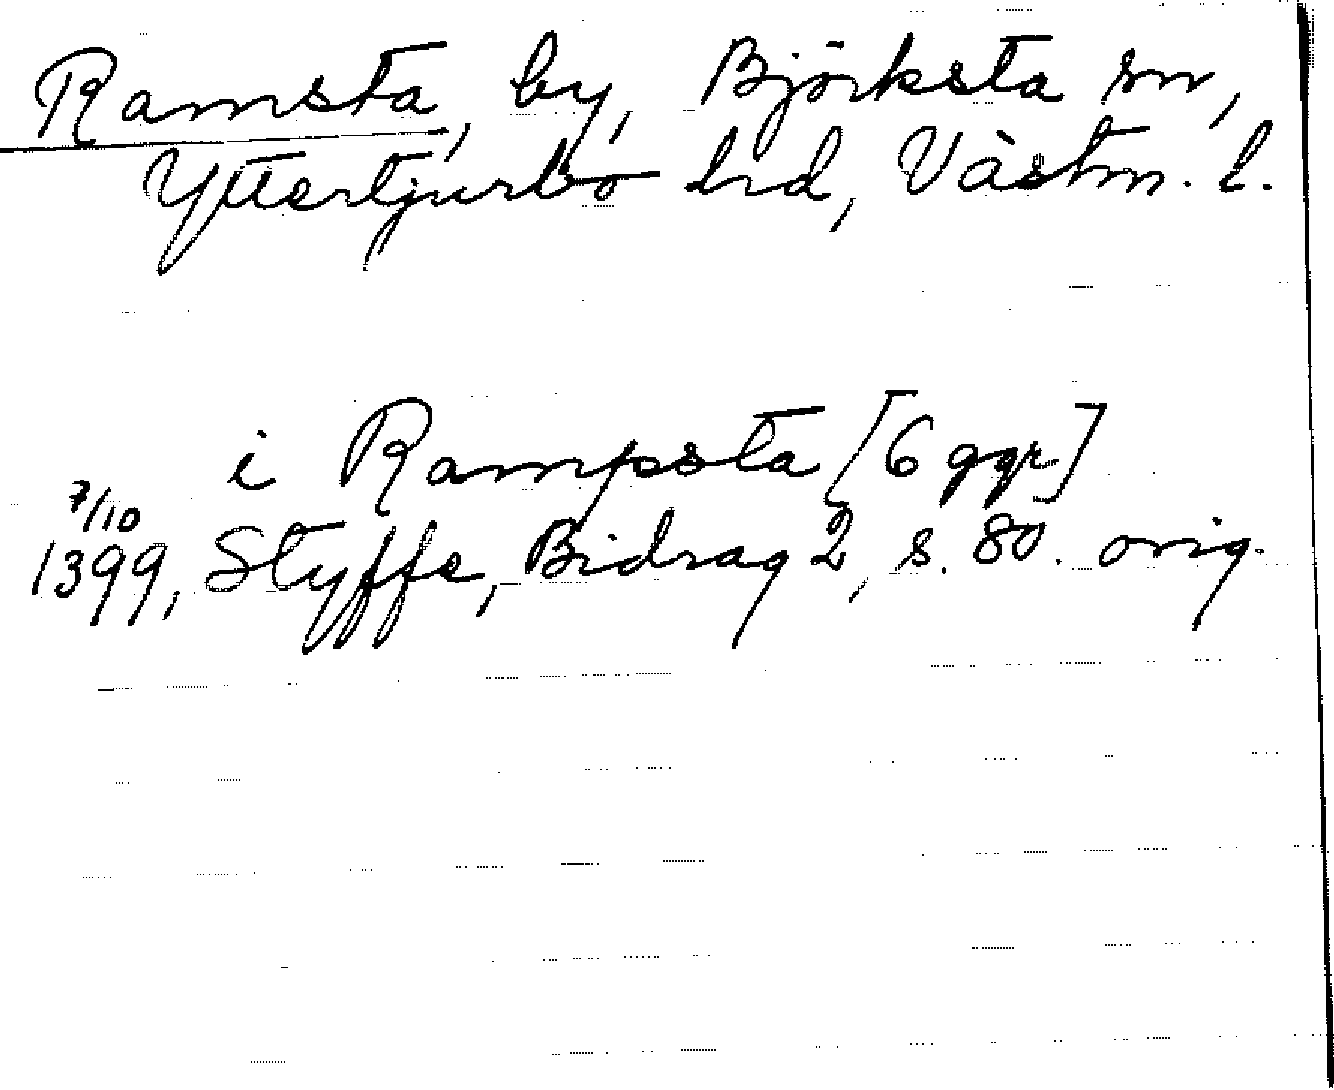 Ramsta, by, Björksta sn,
Yttertjurbo hrd, Västm. l.
i Rampsta [6 ggr]
7/10
1399, Styffe, Bidrag 2, s. 80. orig.